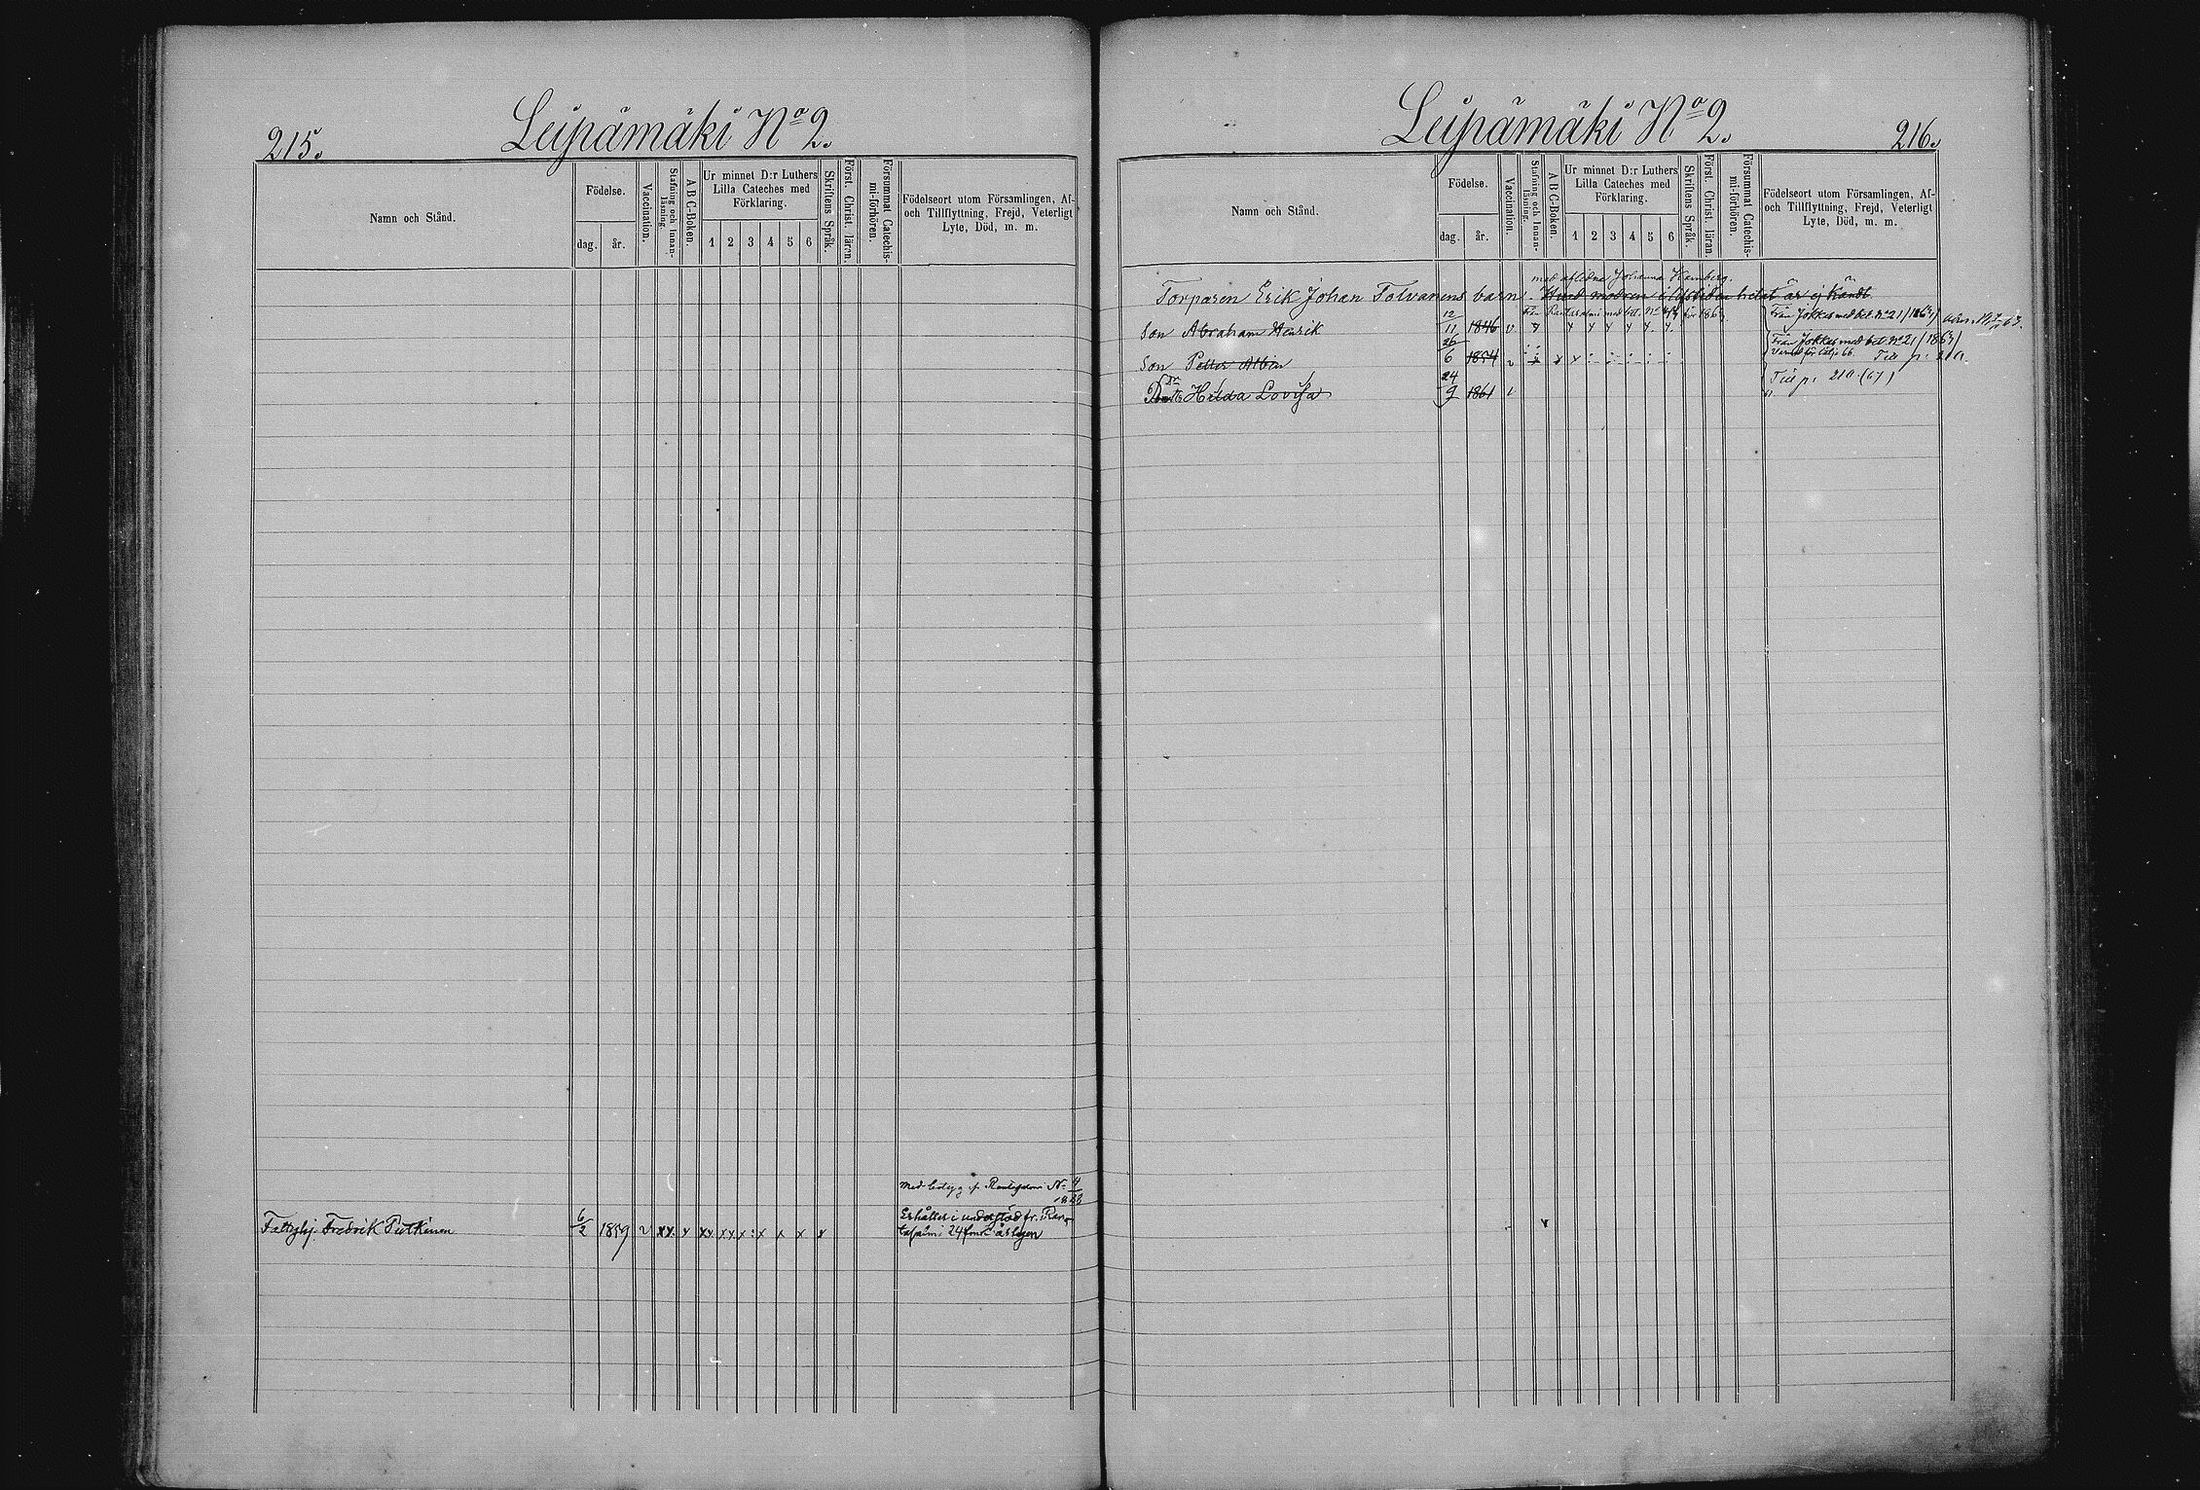 215.
Leipämäki No 2.
Namn och Stånd.
Födelse.
dag.
år.
Vaccination.
Stafning och Innan-
läsning.
A B C-Boken.
Ur minnet D:r Luthers
Lilla Cateches med
Förklaring.
1 2 3 4 5 6
Skriftens Språk.
Först. Christ. läran.
Försummat Catechis-
mi-förhören.
Födelseort utom Församlingen, Af-
och Tillflyttning, Frejd, Veterligt
Lyte, Död, m. m.
Med betyg af Rantasalmi No 4
Fattighj. Fredrik Putkinen 6/2 1859 v xx x xx xx x: x x x x
Erhåller i understöd fr. Ran-
tasalmi 24 fmk årligen
Leipämäki No 2.
216.
Namn och Stånd.
Födelse.
dag.
år.
Vaccination.
Stafning och Innan-
läsning.
A B C-Boken.
Ur minnet D:r Luthers
Lilla Cateches med
Förklaring.
1 2 3 4 5 6
Skriftens Språk.
Först. Christ. läran.
Försummat Catechis-
mi-förhören.
Födelseort utom Församlingen, Af-
och Tillflyttning, Frejd, Veterligt
Lyte, Död, m. m.
med aflidna Johanna
Torparen Erik Johan Tolvanens barn. Hvad modren i lifstiden hetat är ej kändt
Son Abraham Henrik 12/11 1846 v
Från Jokkas med bet. No 21/1863
Son Petter Albin 26/6 1854 v x x x
Från Jokkas med bet No 21/1863
Till p. 210.
Hilda Lovisa 24/9 1861
Till p. 210 (67)
x